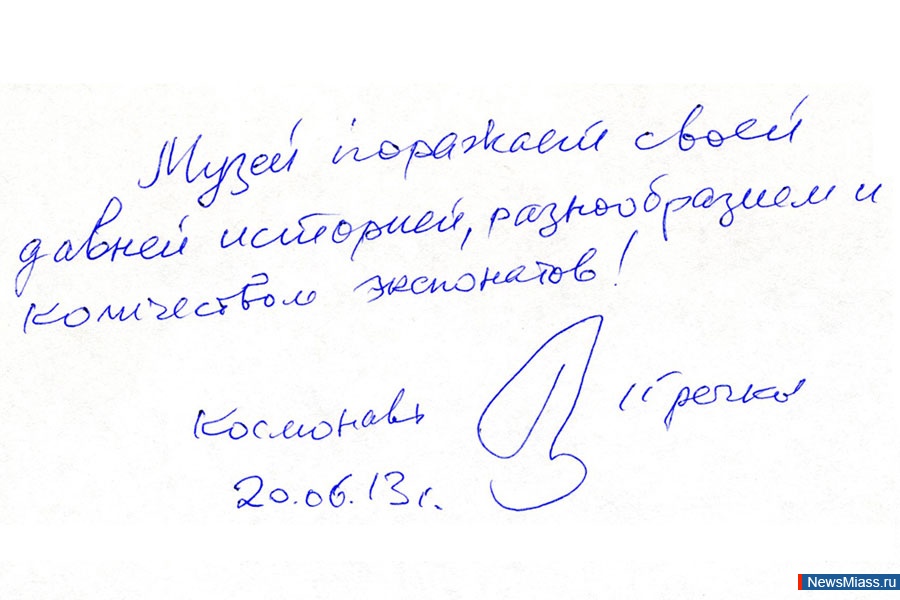 Музей поражает своей
давней историей, разнообразием и
количеством экспонатов!
Космонавт Гречко
20.06.13 г.
NewsMiass.ru